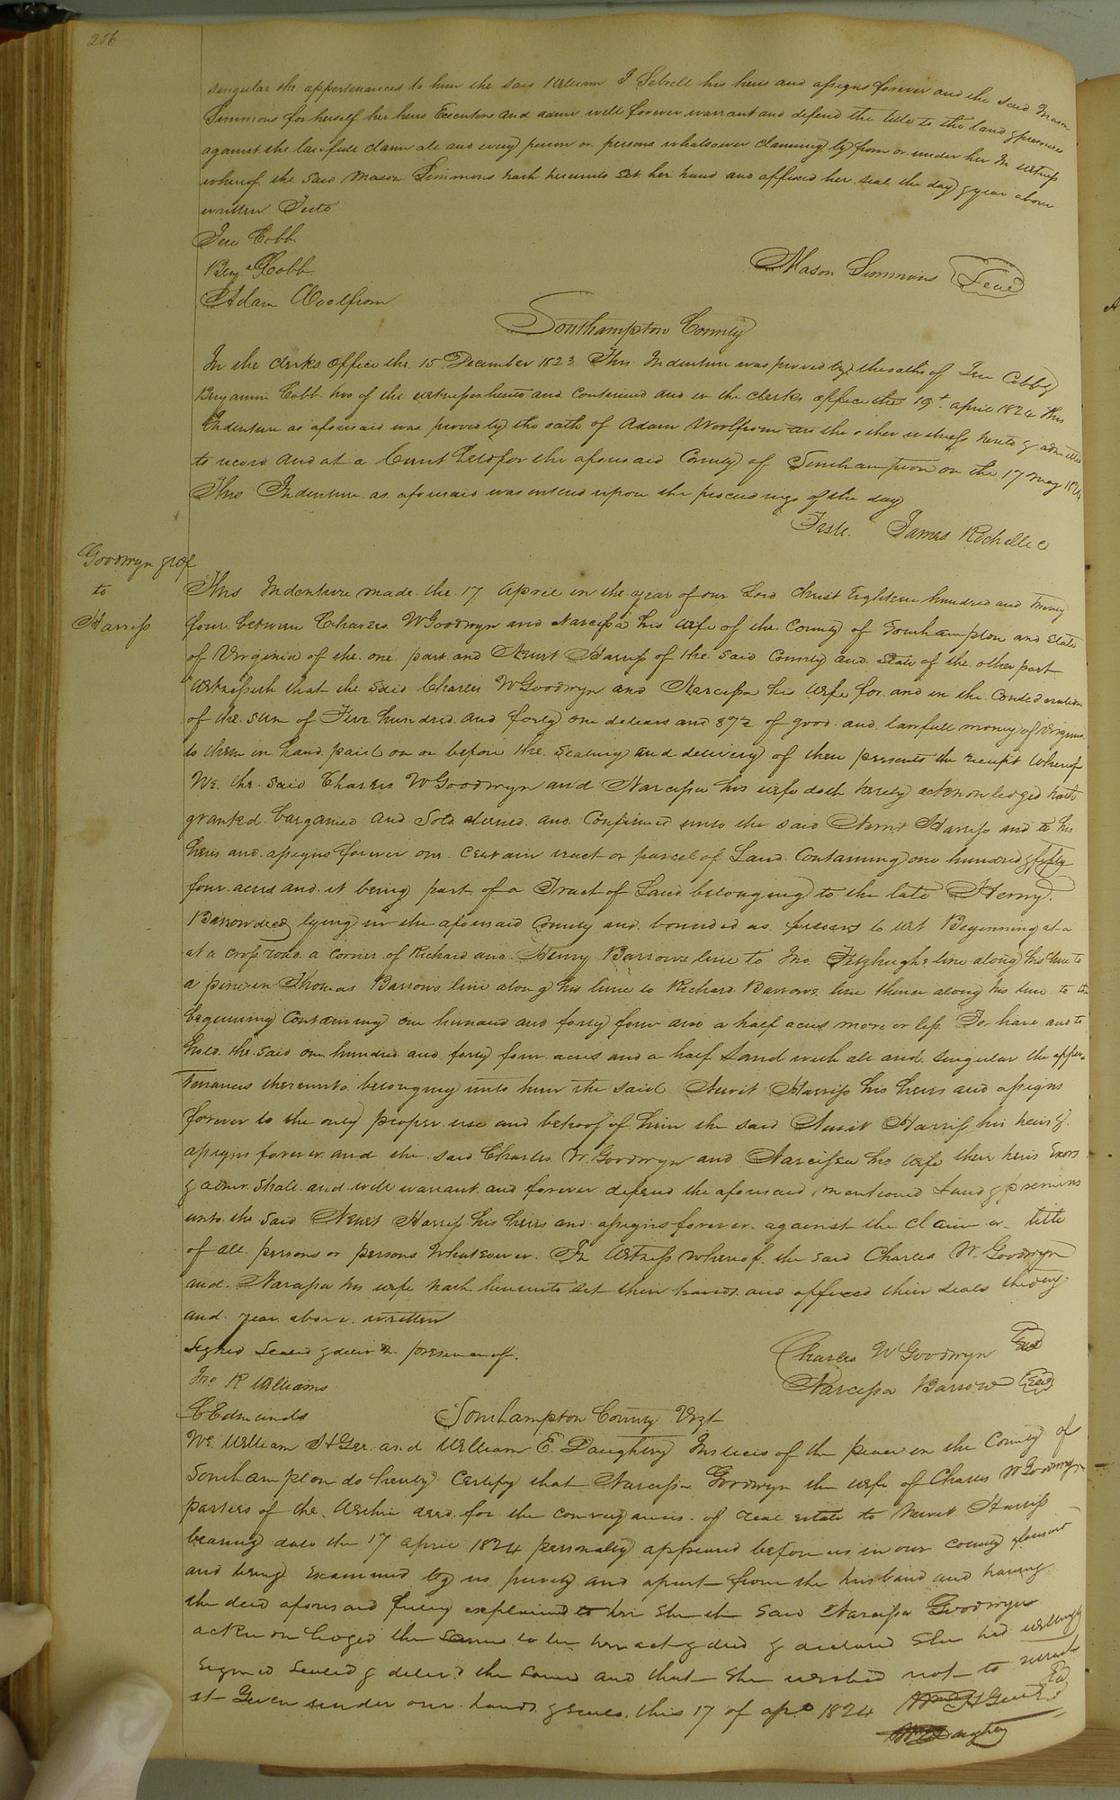 256
singular the appertenances to him the said William J Sebrell his heirs and assigns forever and the said Mason
Simmons for herself her heirs Executors and admr will forever warrant and defend the title to the land & premises
against the lawfull claim all and every person or persons whatsoever claiming by from or under her In witness
whereof the said Mason Simmons hath hereunto set her hand and affixed her seal the day & year above
written Teste
Jere Cobb
Benj Cobb
Mason Simmons Seal
Adam Woolfrom
Southampton County
In the clerks office the 15 December 1823 This Indenture was proved by the oaths of Jere Cobb &
Benjamin Cobb two of the witnesses hereto and continued and in the clerks office the 19t april 1824 this
Indenture as aforesaid was proved by the oath of Adam Woolfrom the other witness hereto & admitted
to record And at a Court held for the aforesaid County of Southampton on the 17 may 1824
This Indenture as aforesaid was entered upon the proceedings of the day
Teste. James Rochelle C
Goodwyn & wf
to
Harriss
This Indenture made the 17 April in the year of our Lord Christ Eighteen hundred and twenty
four between Charles W Goodwyn and Narcissa his wife of the County of Southampton and State
of Virginia of the one part and Newit Harriss of the said County and State of the other part
Witnesseth that the said Charles W Goodwyn and Narcissa his wife for and in the Consideration
of the sum of Five hundred and forty one dollars and 87½ of good and lawfull money of Virginia
to them in hand paid on or before the sealing and delivery of these presents the receipt whereof
We the said Charles W Goodwyn and Narcissa his wife doth hereby acknowledged hath
granted barganed and sold aliened and Confirmed unto the said Newit Harriss and to his
heirs and assigns forever one certain tract or parcel of Land Containing one hundred & fifty
four acres and it being part of a Tract of Land belonging to the late Henry
Barrow decd lying in the aforesaid County and bounded as follows to wit Beginning at a
at a cross road a corner of Richard and Henry Barrows line to Jno Fitzhughs line along his line to
a pine in Thomas Barrows line along his line to Richard Barrows line thence along his line to the
beginning Containing one hundred and forty four and a half acres more or less To have and to
hold the said one hundred and forty four acres and a half Land with all and singular the apper-
tenances thereunto belonging unto him the said Newit Harriss his heirs and assigns
forever to the only proper use and behoof of him the said Newit Harriss his heirs &
assigns forever and the said Charles W. Goodwyn and Narcissa his wife their heirs Exors
& admr shall and will warrant and forever defend the aforesaid mentioned Land & premises
unto the said Newit Harriss his heirs and assigns forever against the claim or title
of all persons or persons whatsoever. In Witness whereof the said Charles W. Goodwyn
and Narcissa his wife hath hereunto set their hands and affixed their seals the day
and year above written
Signed Sealed & deliv in presence of
Charles W Goodwyn Seal
Jno R Williams
Narcissa Barrow Seal
C Edmunds
Southampton County Virgt
We William H Gee and William E Daughtry Justices of the peace in the County of
Southampton do hereby Certify that Narcissa Goodwyn the wife of Charles W Goodwyn
parties of the within deed for the conveyances of real estate to Newit Harriss
bearing date the 17 april 1824 personally appeared before us in our county aforesaid
and being examined by us privily and apart from the husband and having
the deed aforesaid fully explained to her she the said Narcissa Goodwyn
acknowledged the same to be her act & deed & declared she had willingly
signed sealed & deliv.d the same and that she wished not to retract
it Given under our hands & seals this 17 of apl 1824